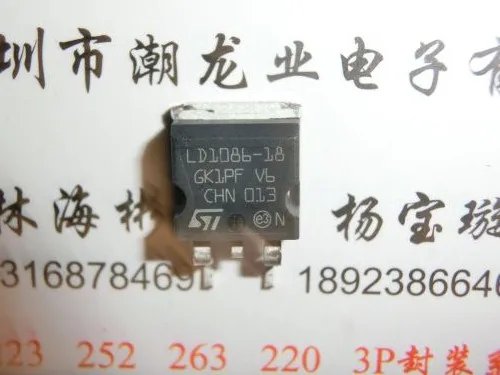 圳市潮龙业电子有
LD1086-18
GK1PF V6
CHN 013
ST e3 N
林海彬 杨宝璇
3168784691 1892386646
123 252 263 220 3P封装系